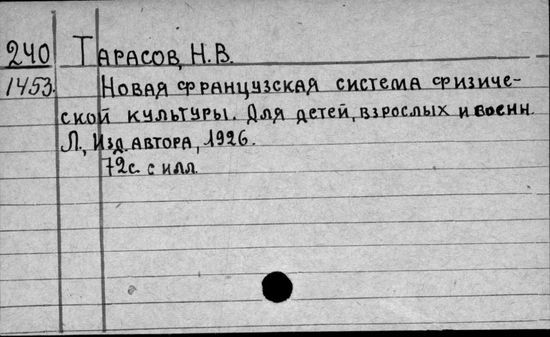 240 Тарасов, Н.В.
1453. Новая французская система физиче-
ской культуры. Для детей, взрослых и военн.
Л., Изд. автора, 1926.
72с. с илл.